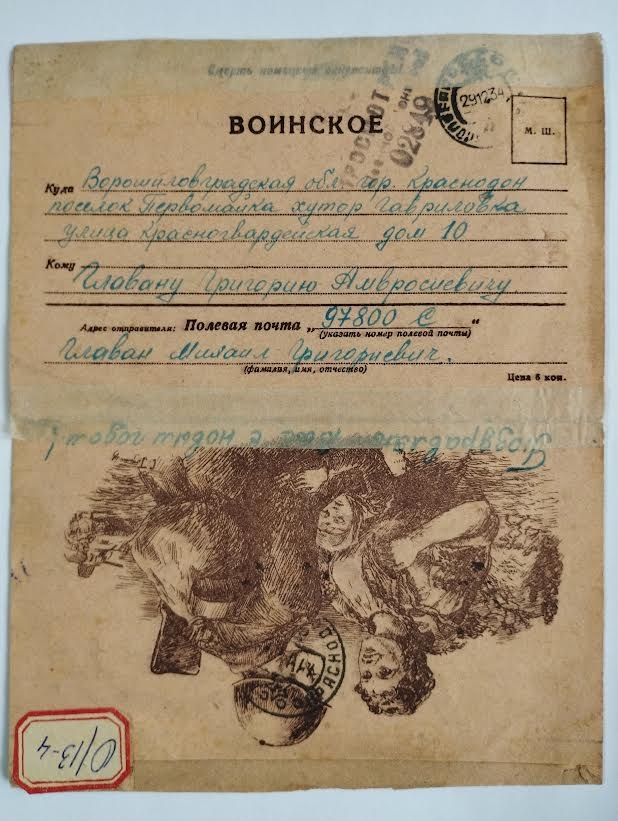 Смерть немецким оккупантам!
ПРОСМОТРЕНО
02849
291234
ВОИНСКОЕ
М. Ш.
Куда Ворошиловградская обл. гор. Краснодон
поселок Первомайка хутор Гавриловка
улица Красногвардейская дом 10
Кому Главану Григорию Амвросиевичу
Адрес отправителя: Полевая почта „97800 С“
(указать номер полевой почты)
Главан Михаил Григориевич.
(фамилия, имя, отчество)
Цена 5 коп.
с новым годом!
КРАСНОД
0/13-4